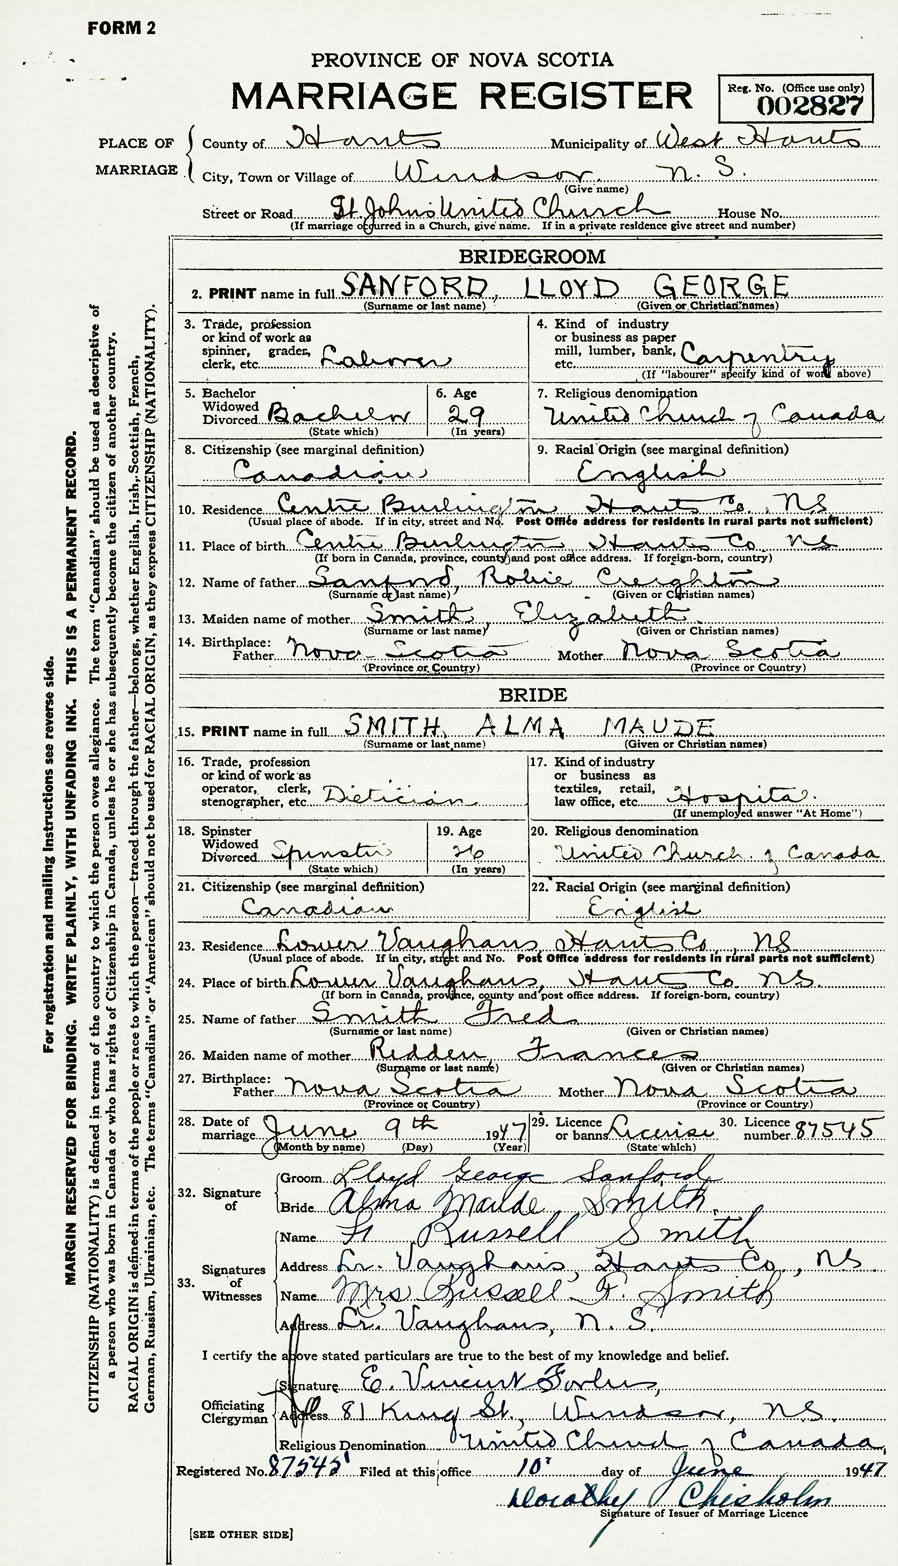 FORM 2
PROVINCE OF NOVA SCOTIA
MARRIAGE REGISTER
Reg. No. (Office use only)
002827
PLACE OF MARRIAGE
County of Hants Municipality of West Hants
City, Town or Village of Windsor N. S.
(Give name)
Street or Road St. Johns United Church House No.
(If marriage occurred in a Church, give name. If in a private residence give street and number)
BRIDEGROOM
2. PRINT name in full SANFORD, LLOYD GEORGE
(Surname or last name) (Given or Christian names)
3. Trade, profession or kind of work as spinner, grader, clerk, etc. Laborer
4. Kind of industry or business as paper mill, lumber, bank, etc. Carpentry
(If "labourer" specify kind of work above)
5. Bachelor Widowed Divorced Bachelor
(State which)
6. Age 29
(In years)
7. Religious denomination
United Church of Canada
8. Citizenship (see marginal definition)
Canadian
9. Racial Origin (see marginal definition)
English
10. Residence Centre Burlington, Hants Co. NS
(Usual place of abode. If in city, street and No. Post Office address for residents in rural parts not sufficient)
11. Place of birth Centre Burlington, Hants Co. NS
(If born in Canada, province, county and post office address. If foreign-born, country)
12. Name of father Sanford, Robie Creighton
(Surname or last name) (Given or Christian names)
13. Maiden name of mother Smith, Elizabeth
(Surname or last name) (Given or Christian names)
14. Birthplace: Father Nova Scotia Mother Nova Scotia
(Province or Country) (Province or Country)
BRIDE
15. PRINT name in full SMITH, ALMA MAUDE
(Surname or last name) (Given or Christian names)
16. Trade, profession or kind of work as operator, clerk, stenographer, etc. Dietician
17. Kind of industry or business as textiles, retail, law office, etc. Hospital
(If unemployed answer "At Home")
18. Spinster Widowed Divorced Spinster
(State which)
19. Age 26
(In years)
20. Religious denomination
United Church of Canada
21. Citizenship (see marginal definition)
Canadian
22. Racial Origin (see marginal definition)
English
23. Residence Lower Vaughans, Hants Co., NS.
(Usual place of abode. If in city, street and No. Post Office address for residents in rural parts not sufficient)
24. Place of birth Lower Vaughans, Hants Co NS.
(If born in Canada, province, county and post office address. If foreign-born, country)
25. Name of father Smith Fred
(Surname or last name) (Given or Christian names)
26. Maiden name of mother Redden, Frances
(Surname or last name) (Given or Christian names)
27. Birthplace: Father Nova Scotia Mother Nova Scotia
(Province or Country) (Province or Country)
28. Date of marriage June 9th 1947
(Month by name) (Day) (Year)
29. Licence or banns License
(State which)
30. Licence number 87545
32. Signature of
Groom Lloyd George Sanford
Bride Alma Maude Smith
33. Signatures of Witnesses
Name Russell Smith
Address Lr. Vaughans, Hants Co., NS.
Name Mrs Russell F. Smith
Address Lr. Vaughans, N. S.
I certify the above stated particulars are true to the best of my knowledge and belief.
Officiating Clergyman
Signature E. Vincent
Address 81 King St., Windsor, N.S.
Religious Denomination United Church of Canada,
Registered No. 87545 Filed at this office 10 day of June 1947
Dorothy Chisholm
Signature of Issuer of Marriage Licence
[SEE OTHER SIDE]
For registration and mailing instructions see reverse side.
MARGIN RESERVED FOR BINDING. WRITE PLAINLY, WITH UNFADING INK. THIS IS A PERMANENT RECORD.
CITIZENSHIP (NATIONALITY) is defined in terms of the country to which the person owes allegiance. The term "Canadian" should be used as descriptive of
a person who was born in Canada or who has rights of Citizenship in Canada, unless he or she has subsequently become the citizen of another country.
RACIAL ORIGIN is defined in terms of the people or race to which the person—traced through the father—belongs, whether English, Irish, Scottish, French,
German, Russian, Ukrainian, etc. The terms "Canadian" or "American" should not be used for RACIAL ORIGIN, as they express CITIZENSHIP (NATIONALITY).